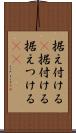 据え付ける
据付ける
据えつける